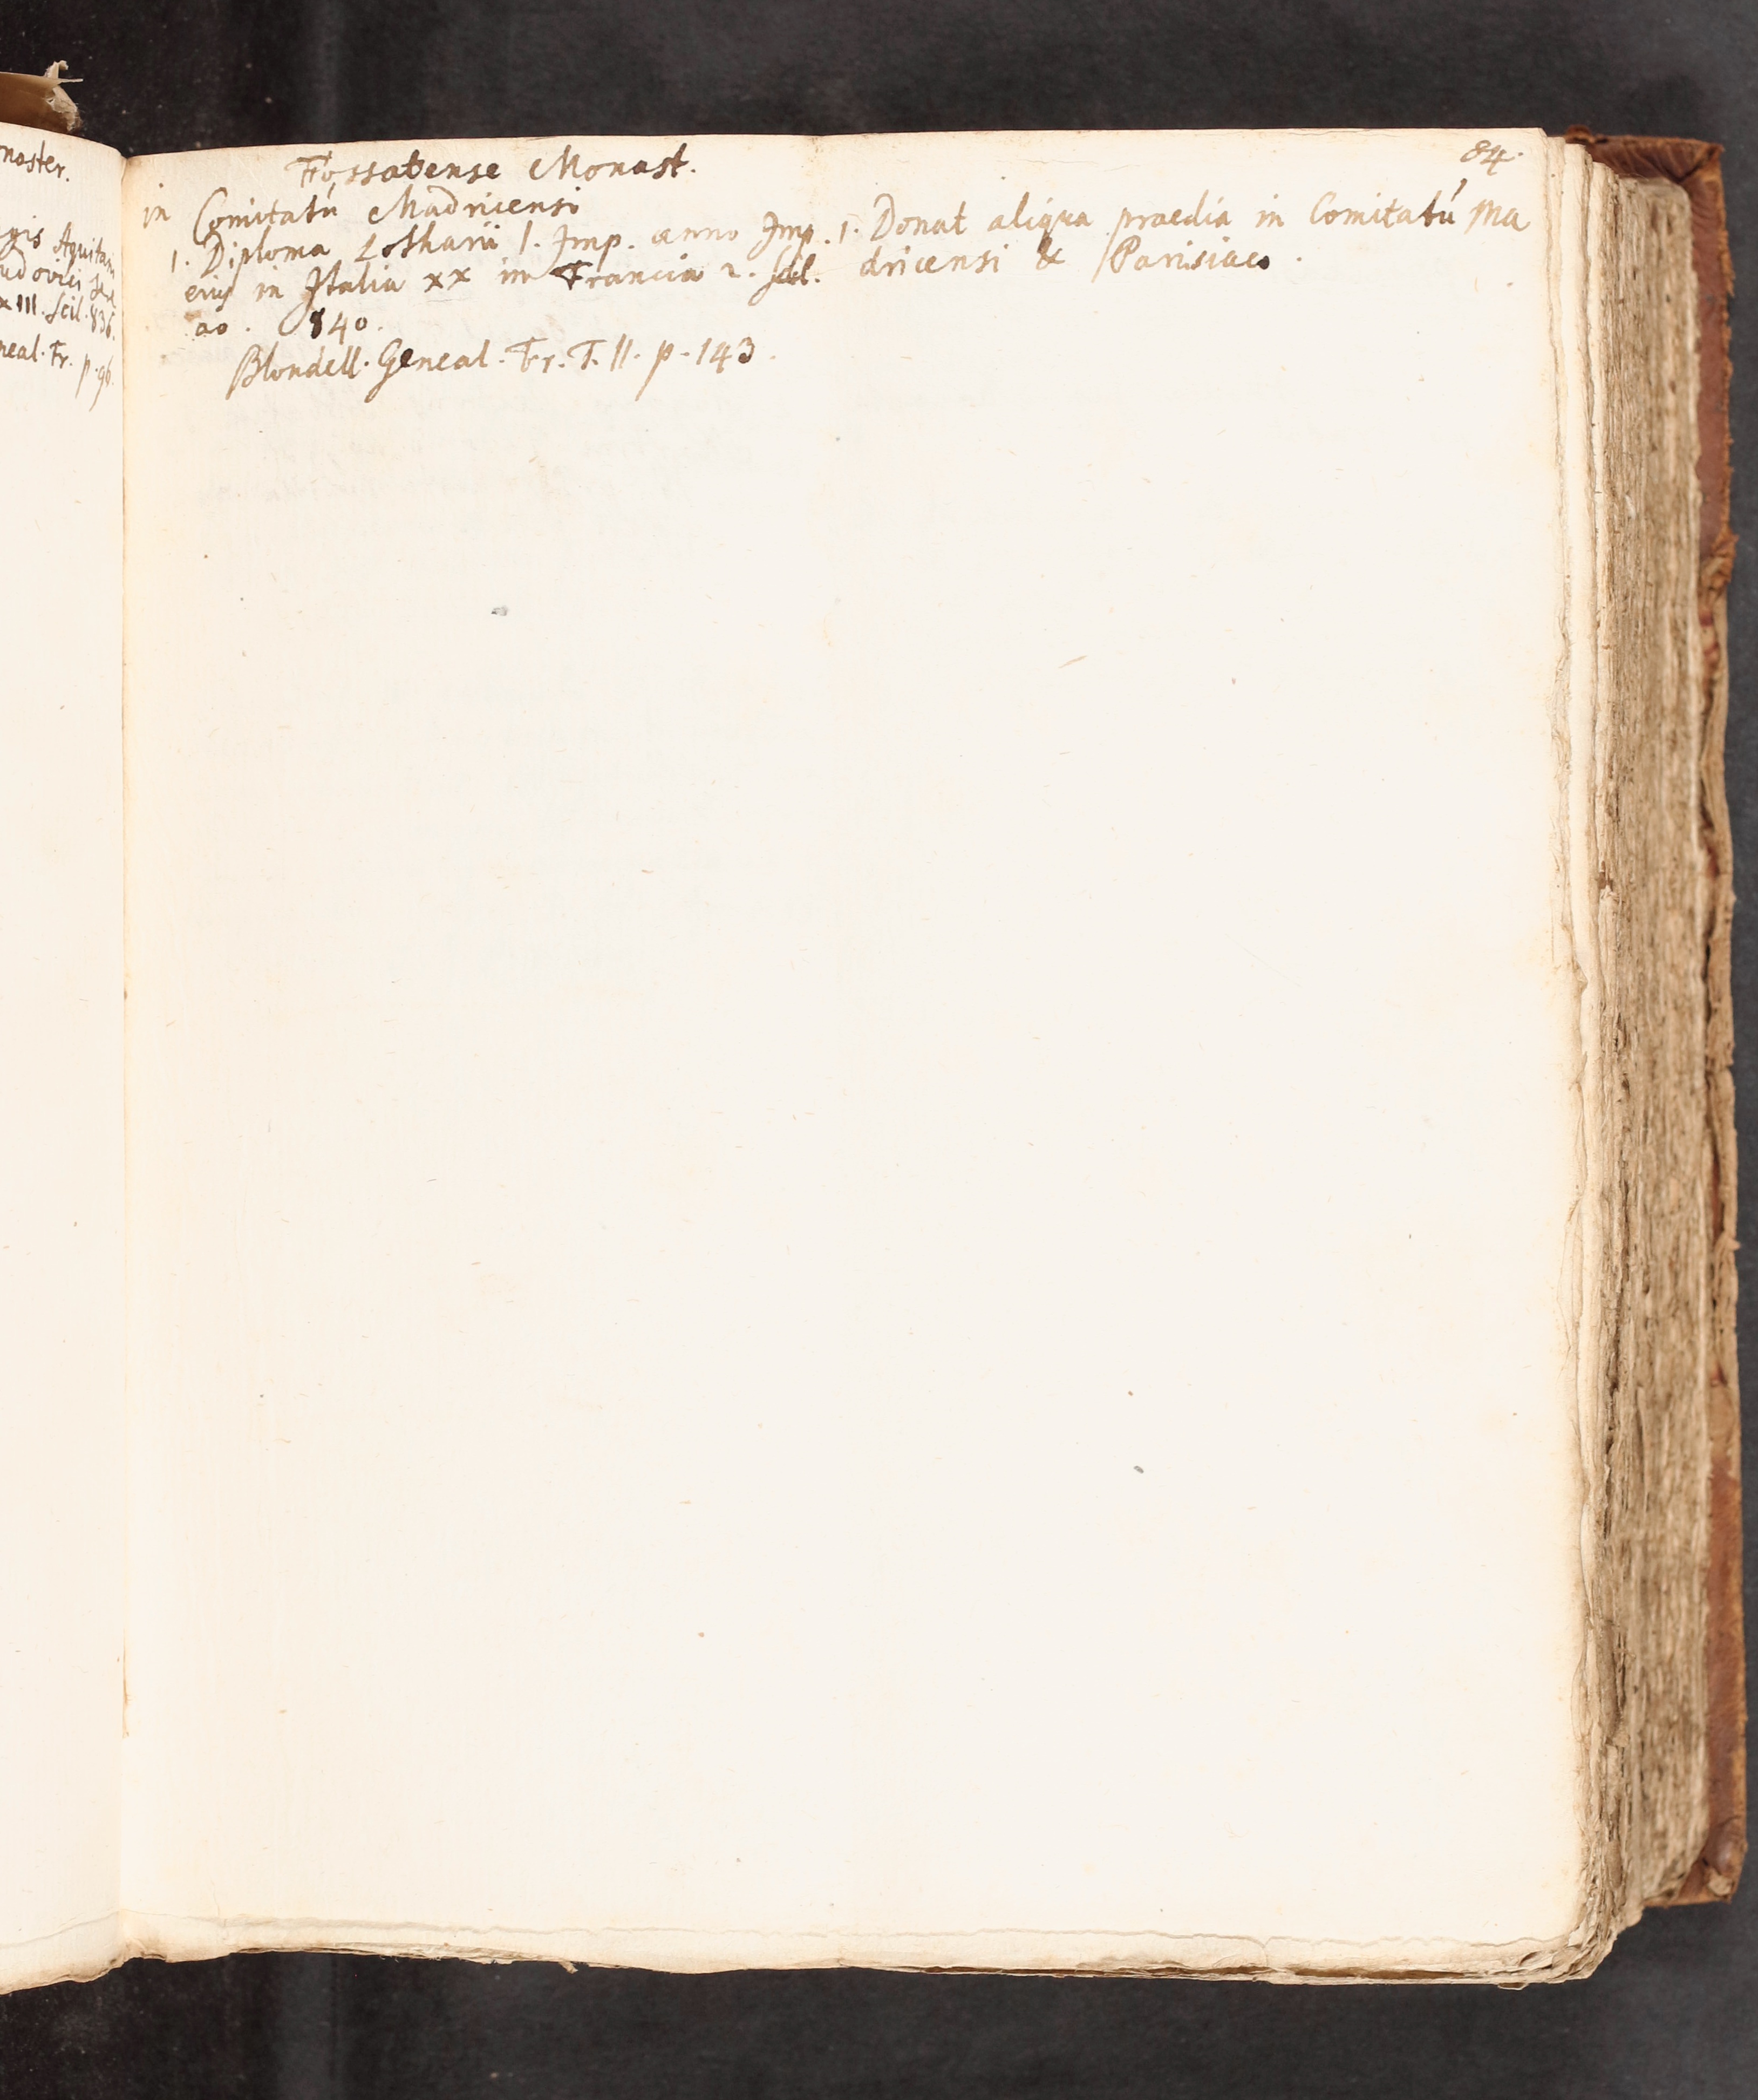 naster.
gis Aquitan
udovici
XIII. Scil. 836.
neal. Fr. p. 96.
84.
Fossatense Monast.
in Comitatú Madricensi
1. Diploma Lotharii I. Imp. anno Imp.
eius in Italia XX in Francia 2. Scil.
ao. 840.
Blondell. Geneal. Fr. T. II. p. 143.
1. Donat aliqua praedia in Comitatú Ma
dricensi & Parisiaco.